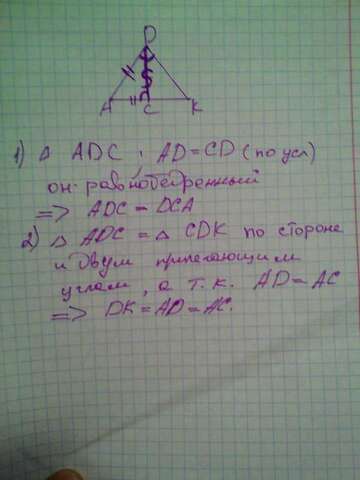 D
A C K
1) △ ADC, AD=CD (по усл)
он равнобедренный
=> ADC = DCA
2) △ ADC = △ CDK по стороне
и двум прилегающим
углам, а т.к. AD=AC
=> DK=AD=AC.